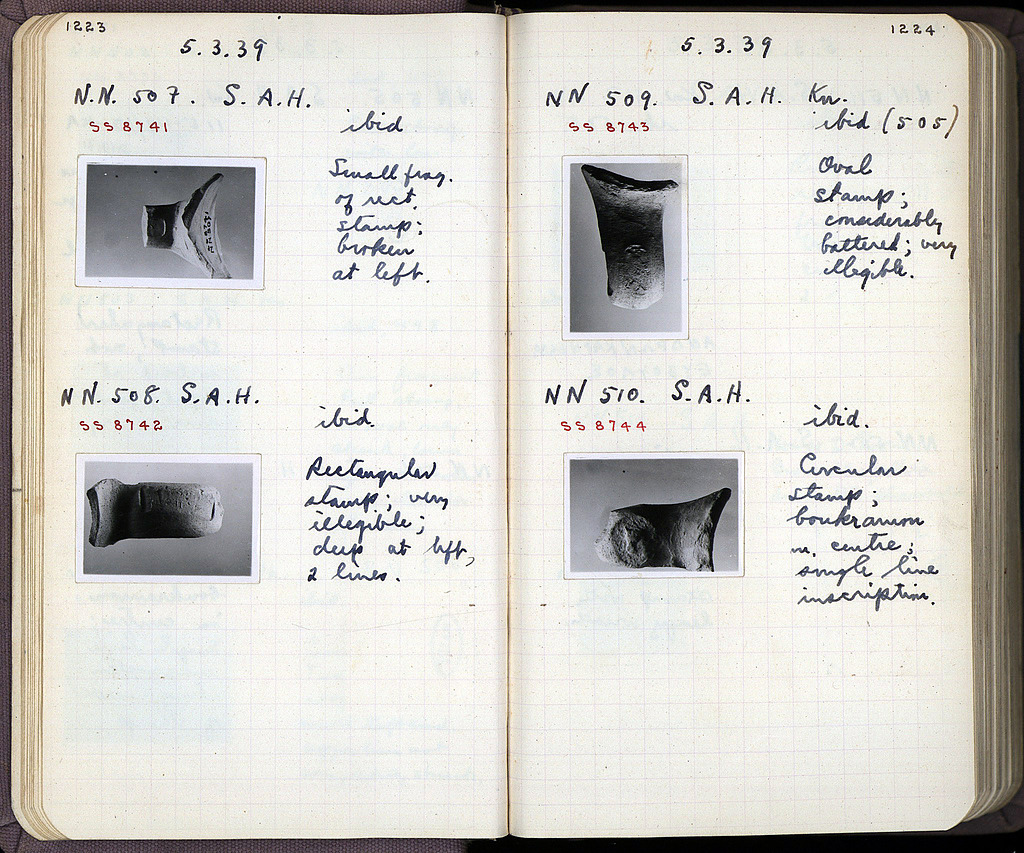 1223
5.3.39
N.N. 507. S.A.H.
SS 8741
ibid
Small frag.
of rect.
stamp;
broken
at left.
NN. 508. S.A.H.
SS 8742
ibid.
Rectangular
stamp; very
illegible;
deep at left,
2 lines.
1224
5.3.39
NN 509. S.A.H. Kn.
SS 8743
ibid (505)
Oval
stamp;
considerably
battered; very
illegible.
NN 510. S.A.H.
SS 8744
ibid.
Circular
stamp;
boukranion
in centre;
single line
inscription.